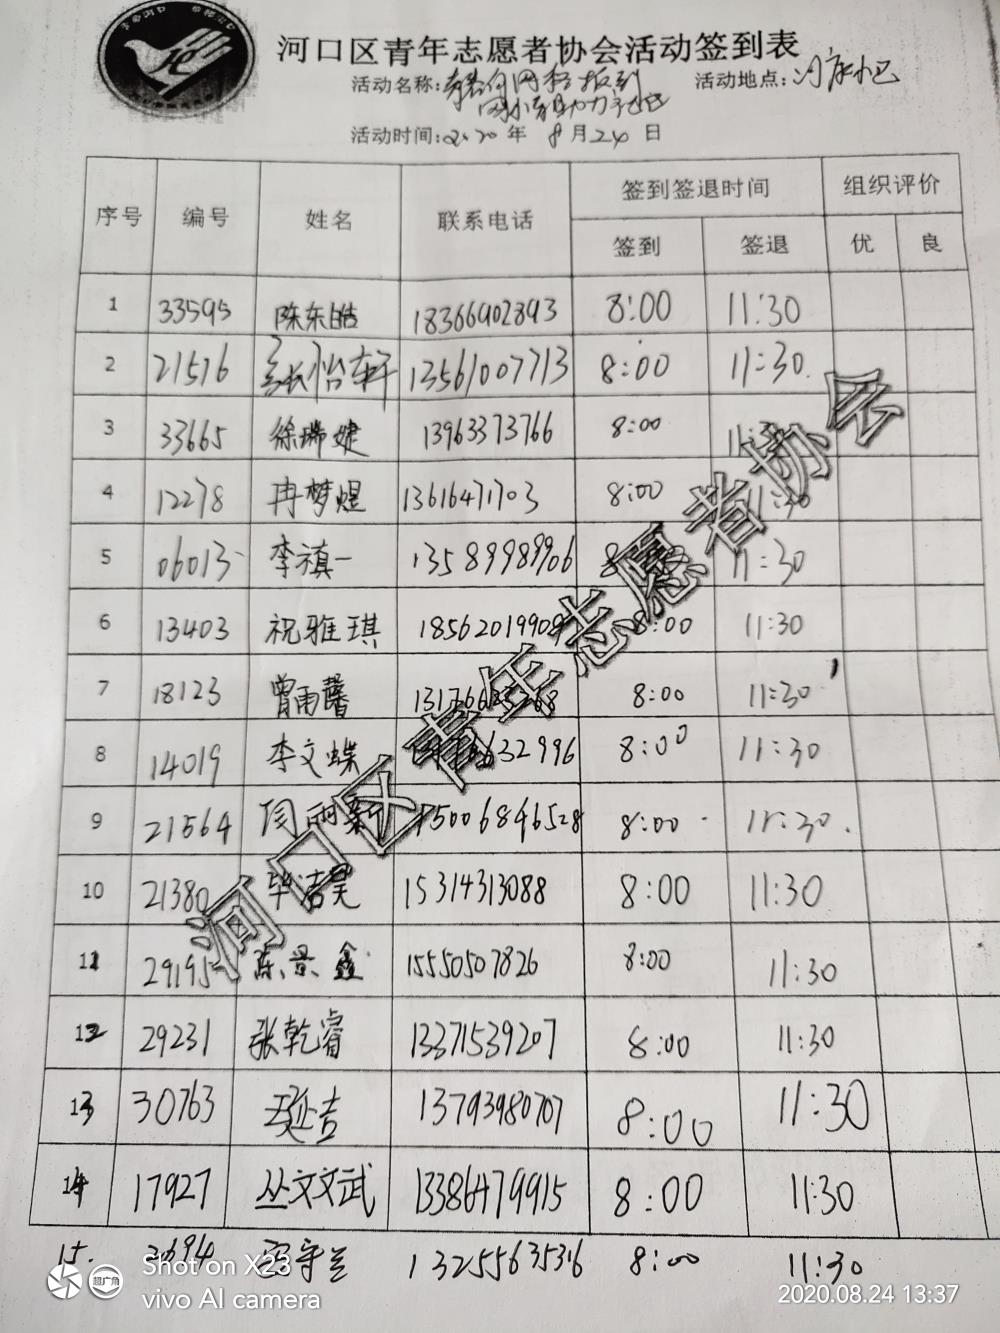 河口区青年志愿者协会活动签到表
活动名称: 活动地点:
活动时间:2020年 8月24日
序号 编号 姓名 联系电话 签到签退时间 组织评价
签到 签退 优 良
1 33595 陈东皓 18366902893 8:00 11:30
2 21516 张怡轩 13561007713 8:00 11:30
3 33665 徐瑞婕 13963373766 8:00 11:30
4 12278 冉梦煜 13616471703 8:00 11:30
5 06013 李禛一 13589989906 11:30
6 13403 祝雅琪 8:00 11:30
7 18123 曾雨馨 8:00 11:30
8 14019 李文蝶 8:00 11:30
9 21564 闫雨新 15006846528 8:00 11:30
10 21380 毕洁昊 15314313088 8:00 11:30
11 29195 陈景鑫 15550507826 8:00 11:30
12 29231 张乾睿 13371539207 8:00 11:30
13 30763 13793980707 8:00 11:30
14 17927 丛文文武 13386479915 8:00 11:30
15. 13255635316 8:00 11:30
河口区青年志愿者协会
Shot on X23
vivo AI camera
超广角
2020.08.24 13:37